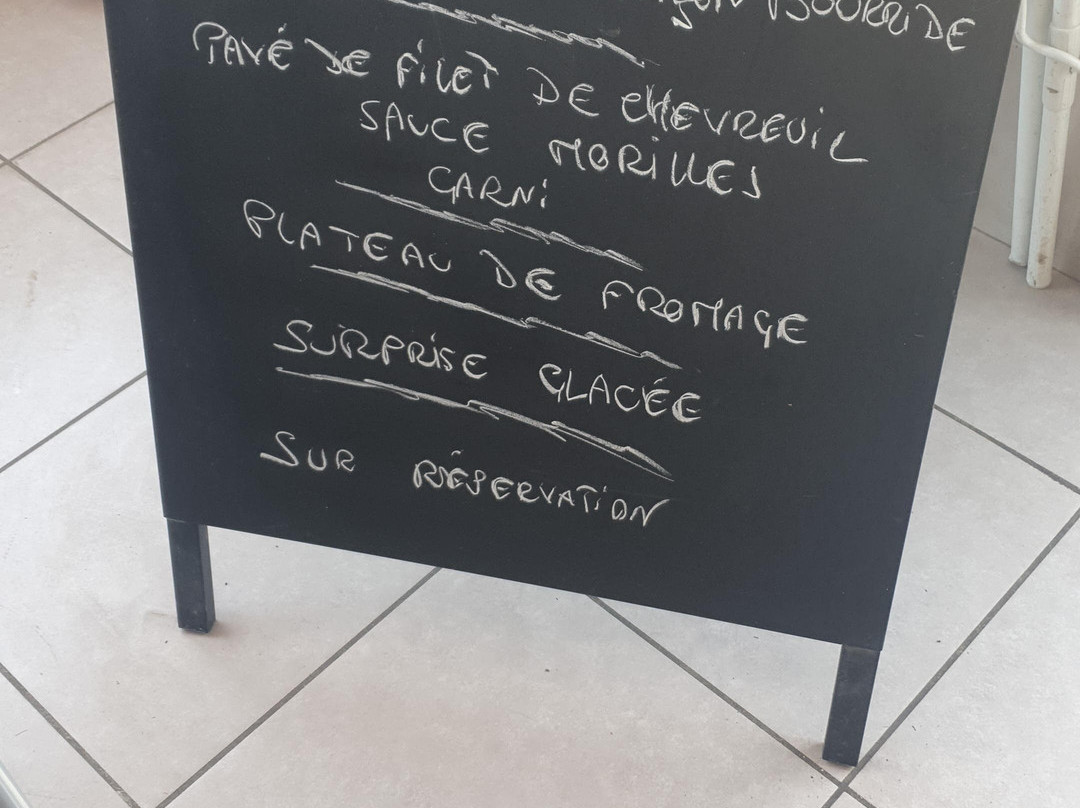 BOURRIDE
PAVÉ DE FILET DE CHEVREUIL
SAUCE MORILLES
GARNI
PLATEAU DE FROMAGE
SURPRISE GLACÉE
SUR RÉSERVATION